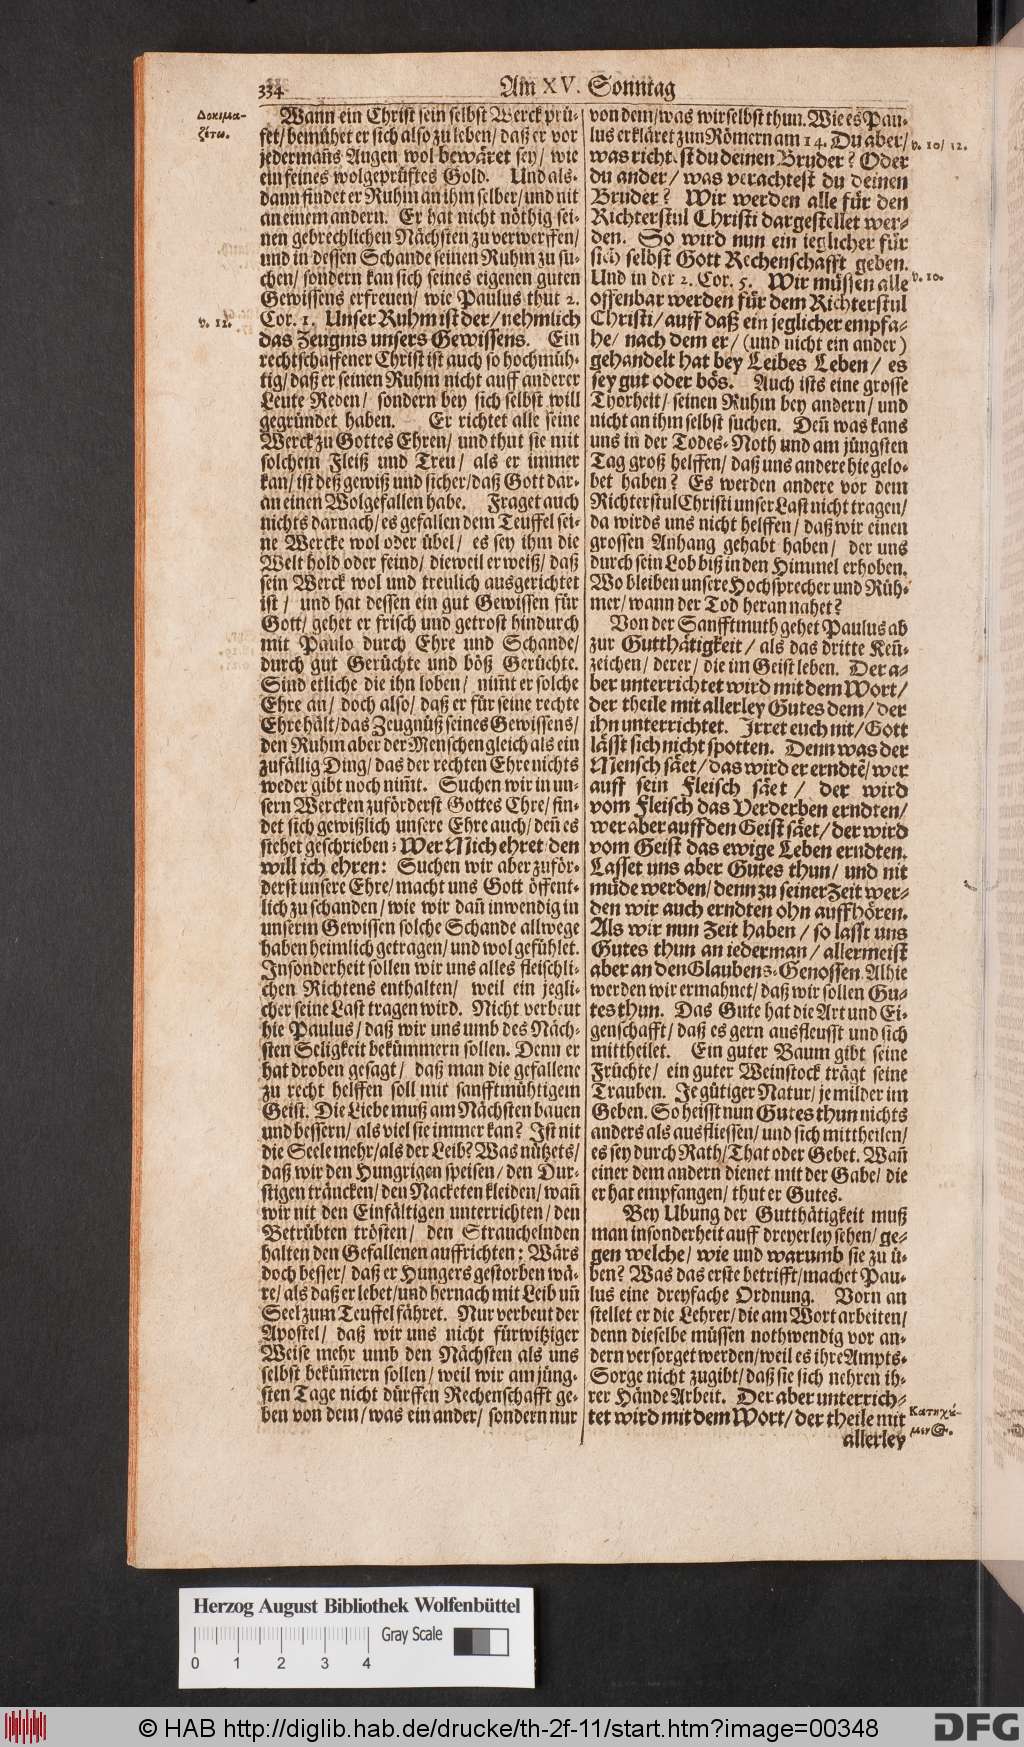 334
Am XV. Sonntag
Δοκιμα-
ζέτω.
Wann ein Christ sein selbst Werck prü-
fet/ bemühet er sich also zu leben/ daß er vor
jedermañs Augen wol bewäret sey/ wie
ein feines wolgeprüftes Gold. Und als-
dann findet er Ruhm an ihm selber/ und nit
an einem andern. Er hat nicht nöthig sei-
nen gebrechlichen Nächsten zu verwerffen/
und in dessen Schande seinen Ruhm zu su-
chen/ sondern kan sich seines eigenen guten
Gewissens erfreuen/ wie Paulus thut 2.
v. 12.
Cor. 1. Unser Ruhm ist der/ nehmlich
das Zeugnis unsers Gewissens. Ein
rechtschaffener Christ ist auch so hochmüh-
tig/ daß er seinen Ruhm nicht auff anderer
Leute Reden/ sondern bey sich selbst will
gegründet haben. Er richtet alle seine
Werck zu Gottes Ehren/ und thut sie mit
solchem Fleiß und Treu/ als er immer
kan/ ist deß gewiß und sicher/ daß Gott dar-
an einen Wolgefallen habe. Fraget auch
nichts darnach/ es gefallen dem Teuffel sei-
ne Wercke wol oder übel/ es sey ihm die
Welt hold oder feind/ dieweil er weiß/ daß
sein Werck wol und treulich ausgerichtet
ist/ und hat dessen ein gut Gewissen für
Gott/ gehet er frisch und getrost hindurch
mit Paulo durch Ehre und Schande/
durch gut Gerüchte und böß Gerüchte.
Sind etliche die ihn loben/ nim̃t er solche
Ehre an/ doch also/ daß er für seine rechte
Ehre hält/ das Zeugnüß seines Gewissens/
den Ruhm aber der Menschen gleich als ein
zufällig Ding/ das der rechten Ehre nichts
weder gibt noch nim̃t. Suchen wir in un-
sern Wercken zuförderst Gottes Ehre/ fin-
det sich gewißlich unsere Ehre auch/ deñ es
stehet geschrieben: Wer Mich ehret/ den
will ich ehren: Suchen wir aber zuför-
derst unsere Ehre/ macht uns Gott öffent-
lich zu schanden/ wie wir dañ inwendig in
unserm Gewissen solche Schande allwege
haben heimlich getragen/ und wol gefühlet.
Insonderheit sollen wir uns alles fleischli-
chen Richtens enthalten/ weil ein jegli-
cher seine Last tragen wird. Nicht verbeut
hie Paulus/ daß wir uns umb des Näch-
sten Seligkeit bekümmern sollen. Denn er
hat droben gesagt/ daß man die gefallene
zu recht helffen soll mit sanfftmühtigem
Geist. Die Liebe muß am Nächsten bauen
und bessern/ als viel sie immer kan? Ist nit
die Seele mehr/ als der Leib? Was nützets/
daß wir den Hungrigen speisen/ den Dur-
stigen träncken/ den Nacketen kleiden/ wañ
wir nit den Einfältigen unterrichten/ den
Betrübten trösten/ den Strauchelnden
halten den Gefallenen auffrichten: Wärs
doch besser/ daß er Hungers gestorben wä-
re/ als daß er lebet/ und hernach mit Leib uñ
Seel zum Teuffel fähret. Nur verbeut der
Apostel/ daß wir uns nicht fürwitziger
Weise mehr umb den Nächsten als uns
selbst beküm̃ern sollen/ weil wir am jüng-
sten Tage nicht dürffen Rechenschafft ge-
ben von dem/ was ein ander/ sondern nur
von dem/ was wir selbst thun. Wie es Pau-
lus erkläret zun Römern am 14. Du aber/
v. 10/ 12.
was richtst du deinen Bruder? Oder
du ander/ was verachtest du deinen
Bruder? Wir werden alle für den
Richterstul Christi dargestellet wer-
den. So wird nun ein jeglicher für
sich selbst Gott Rechenschafft geben.
Und in der 2. Cor. 5. Wir müssen alle
v. 10.
offenbar werden für dem Richterstul
Christi/ auff daß ein jeglicher empfa-
he/ nach dem er/ (und nicht ein ander)
gehandelt hat bey Leibes Leben/ es
sey gut oder bös. Auch ists eine grosse
Thorheit/ seinen Ruhm bey andern/ und
nicht an ihm selbst suchen. Deñ was kans
uns in der Todes-Noth und am jüngsten
Tag groß helffen/ daß uns andere hie gelo-
bet haben? Es werden andere vor dem
Richterstul Christi unser Last nicht tragen/
da wirds uns nicht helffen/ daß wir einen
grossen Anhang gehabt haben/ der uns
durch sein Lob biß in den Himmel erhoben.
Wo bleiben unsere Hochsprecher und Rüh-
mer/ wann der Tod heran nahet?
Von der Sanfftmuth gehet Paulus ab
zur Gutthätigkeit/ als das dritte Keñ-
zeichen/ derer/ die im Geist leben. Der a-
ber unterrichtet wird mit dem Wort/
der theile mit allerley Gutes dem/ der
ihn unterrichtet. Irret euch nit/ Gott
lässt sich nicht spotten. Denn was der
Mensch säet/ das wird er erndtẽ/ wer
auff sein Fleisch säet/ der wird
vom Fleisch das Verderben erndten/
wer aber auff den Geist säet/ der wird
vom Geist das ewige Leben erndten.
Lasset uns aber Gutes thun/ und nit
müde werden/ denn zu seiner Zeit wer-
den wir auch erndten ohn auffhören.
Als wir nun Zeit haben/ so lasst uns
Gutes thun an jederman/ allermeist
aber an den Glaubens-Genossen. Alhie
werden wir ermahnet/ daß wir sollen Gu-
tes thun. Das Gute hat die Art und Ei-
genschafft/ daß es gern ausfleusst und sich
mittheilet. Ein guter Baum gibt seine
Früchte/ ein guter Weinstock trägt seine
Trauben. Je gütiger Natur/ je milder im
Geben. So heisst nun Gutes thun nichts
anders als ausfliessen/ und sich mittheilen/
es sey durch Rath/ That oder Gebet. Wañ
einer dem andern dienet mit der Gabe/ die
er hat empfangen/ thut er Gutes.
Bey Ubung der Gutthätigkeit muß
man insonderheit auff dreyerley sehen/ ge-
gen welche/ wie und warumb sie zu ü-
ben? Was das erste betrifft/ machet Pau-
lus eine dreyfache Ordnung. Vorn an
stellet er die Lehrer/ die am Wort arbeiten/
denn dieselbe müssen nothwendig vor an-
dern versorget werden/ weil es ihre Ampts-
Sorge nicht zugibt/ daß sie sich nehren ih-
rer Hände Arbeit. Der aber unterrich-
tet wird mit dem Wort/ der theile mit
Κατηχύ-
μεν@.
allerley
Herzog August Bibliothek Wolfenbüttel
Gray Scale
0 1 2 3 4
© HAB http://diglib.hab.de/drucke/th-2f-11/start.htm?image=00348
DFG